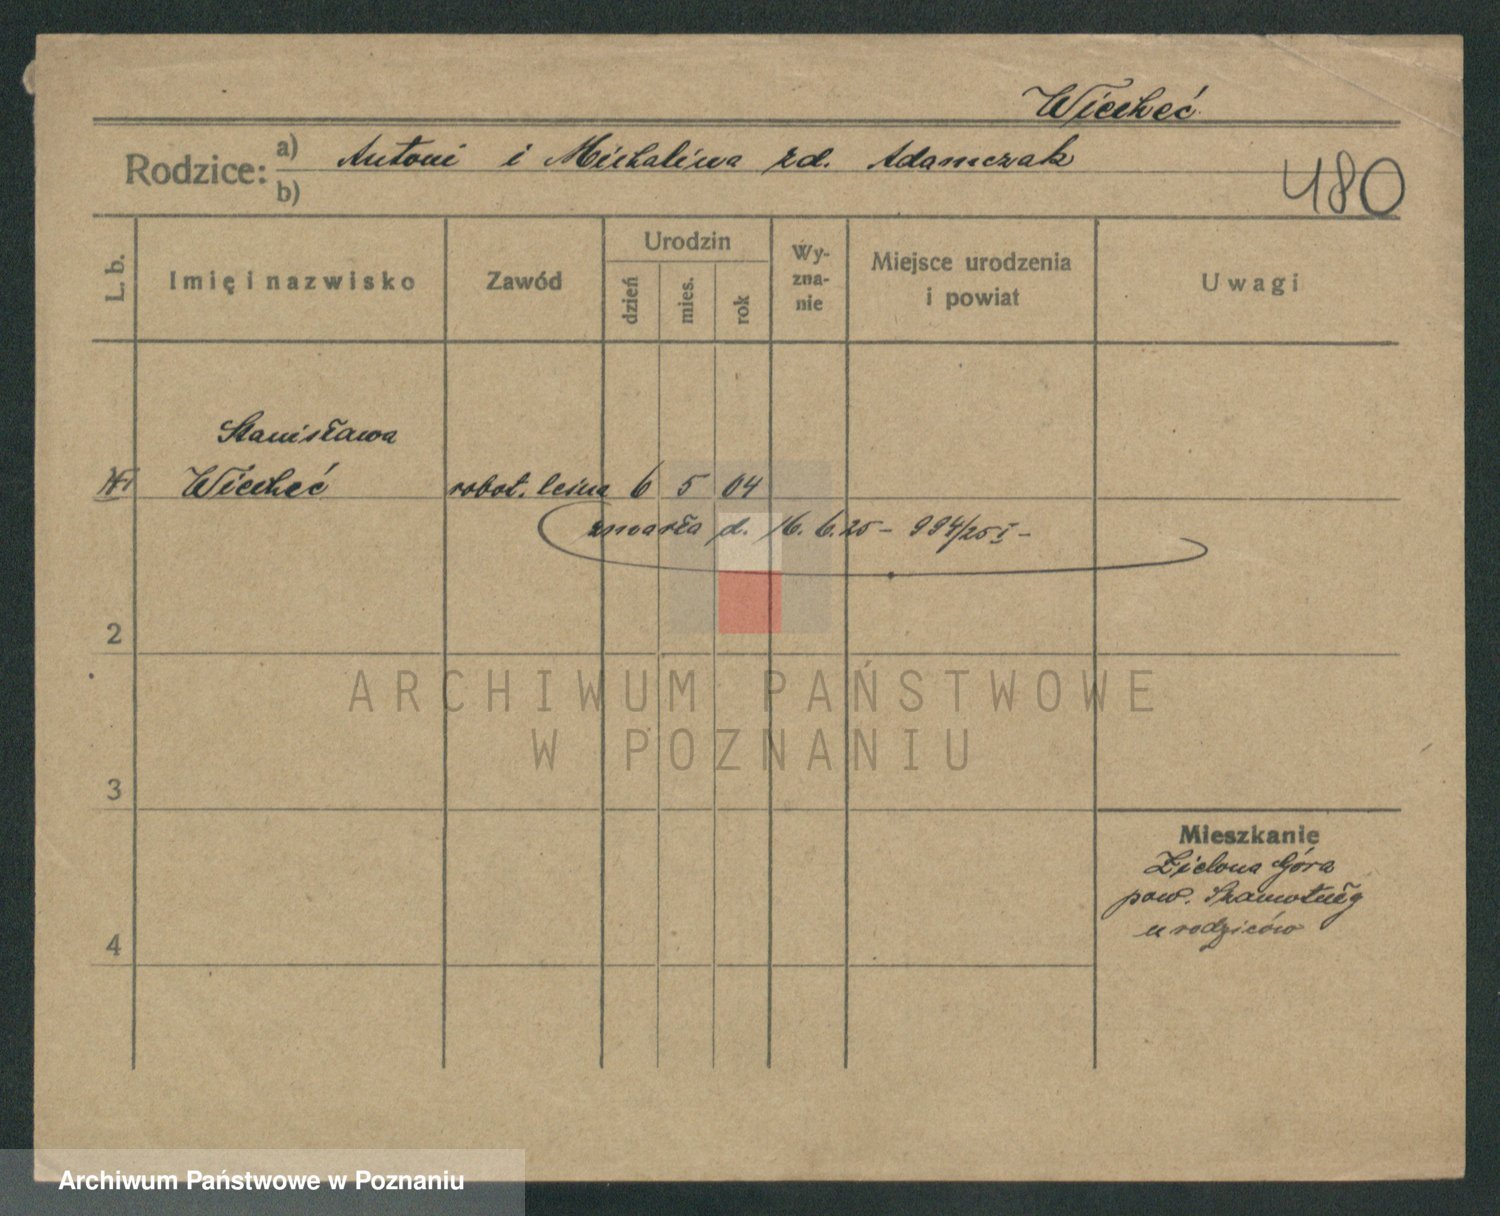 Wiecheć
Rodzice: a) Antoni i Michalina zd. Adamczak
b)
480
L. b.
Imię i nazwisko
Zawód
Urodzin
dzień
mies.
rok
Wy-
zna-
nie
Miejsce urodzenia
i powiat
Uwagi
Stanisława
Wiecheć robot. leśna 6 5 04
zmarła d. 16. 6. 25 – 994/25 I –
2
3
4
Mieszkanie
Zielona Góra
pow. Szamotuły
u rodziców
ARCHIWUM PAŃSTWOWE
W POZNANIU
Archiwum Państwowe w Poznaniu